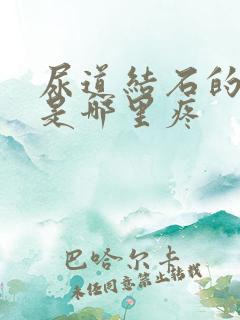 尿道结石的
是哪里疼
巴哈尔卡
未经同意禁止转载